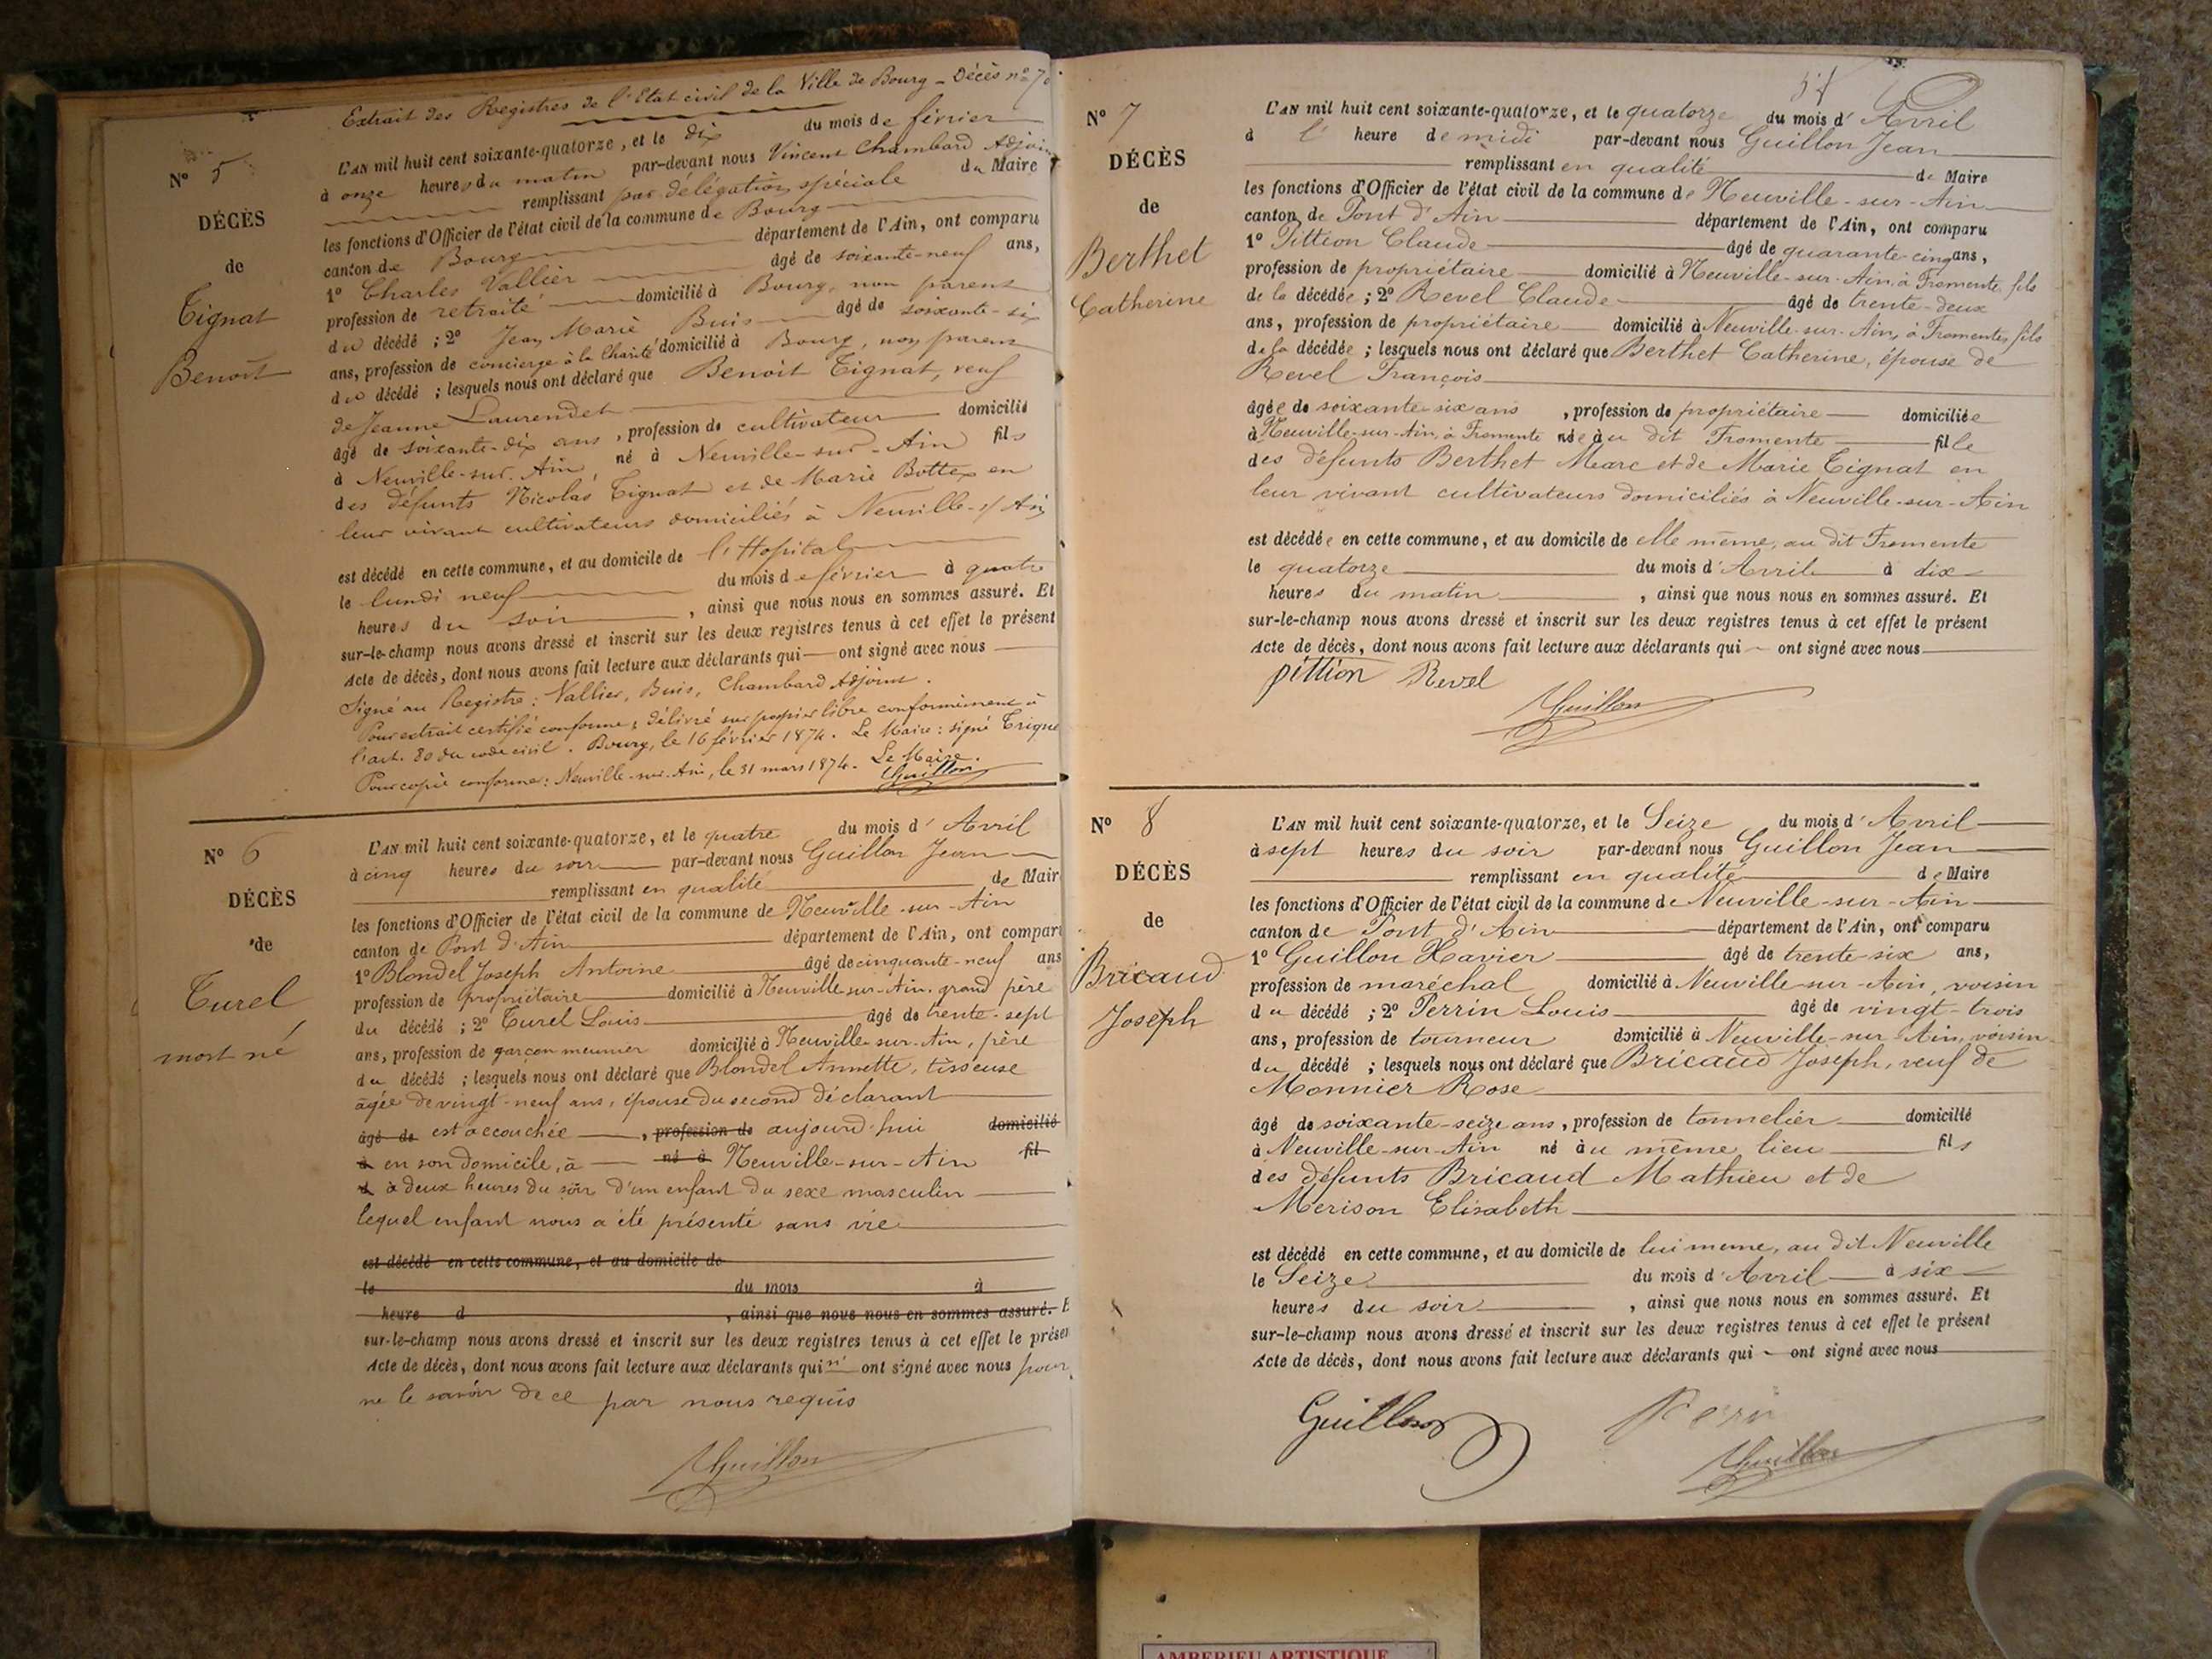 Extrait des Registres de l'Etat civil de la Ville de Bourg - Décès n° 70
N° 5
DÉCÈS
de
Tignat
Benoit
L'AN mil huit cent soixante-quatorze, et le dix du mois de février
à onze heures du matin par-devant nous Vincent Chambard Adjoint
remplissant par délégation spéciale du Maire
les fonctions d'Officier de l'état civil de la commune de Bourg
canton de Bourg département de l'Ain, ont comparu
1° Charles Vallier âgé de soixante-neuf ans,
profession de retraité domicilié à Bourg, non parent
du décédé ; 2° Jean Marie Buis âgé de soixante-six
ans, profession de concierge à la Charité domicilié à Bourg, non parent
du décédé ; lesquels nous ont déclaré que Benoit Tignat, veuf
de Jeanne Laurendet
âgé de soixante-dix ans, profession de cultivateur domicilié
à Neuville-sur-Ain, né à Neuville-sur-Ain fils
des défunts Nicolas Tignat et de Marie Bottex en
leur vivant cultivateurs domiciliés à Neuville-s/Ain
est décédé en cette commune, et au domicile de l'Hopital
le lundi neuf du mois de février à quatre
heures du soir, ainsi que nous nous en sommes assuré. Et
sur-le-champ nous avons dressé et inscrit sur les deux registres tenus à cet effet le présent
Acte de décès, dont nous avons fait lecture aux déclarants qui ont signé avec nous
Signé au Registre : Vallier, Buis, Chambard Adjoint.
Pour extrait certifié conforme, délivré sur papier libre conformément à
l'art. 80 du code civil. Bourg, le 16 février 1874. Le Maire : signé
Pour copie conforme : Neuville-sur-Ain, le 31 mars 1874. Le Maire.
Guillon
N° 6
DÉCÈS
de
Turel
mort né
L'AN mil huit cent soixante-quatorze, et le quatre du mois d'Avril
à cinq heures du soir par-devant nous Guillon Jean
remplissant en qualité de Mair
les fonctions d'Officier de l'état civil de la commune de Neuville-sur-Ain
canton de Pont d'Ain département de l'Ain, ont compar
1° Blondel Joseph Antoine âgé de cinquante-neuf ans
profession de propriétaire domicilié à Neuville-sur-Ain, grand père
du décédé ; 2° Turel Louis âgé de trente-sept
ans, profession de garçon meunier domicilié à Neuville-sur-Ain, père
du décédé ; lesquels nous ont déclaré que Blondel Annette, tisseuse
âgée de vingt-neuf ans, épouse du second déclarant
âgé de est accouchée, profession de aujourd'hui domicilié
à en son domicile, à né à Neuville-sur-Ain fil
d à deux heures du soir d'un enfant du sexe masculin
lequel enfant nous a été présenté sans vie
est décédé en cette commune, et au domicile de
le du mois à
heure d, ainsi que nous nous en sommes assuré. E
sur-le-champ nous avons dressé et inscrit sur les deux registres tenus à cet effet le prése
Acte de décès, dont nous avons fait lecture aux déclarants qui n' ont signé avec nous pour
ne le savoir de ce par nous requis
Guillon
N° 7
DÉCÈS
de
Berthet
Catherine
L'AN mil huit cent soixante-quatorze, et le quatorze du mois d'Avril
à l' heure de midi par-devant nous Guillon Jean
remplissant en qualité de Maire
les fonctions d'Officier de l'état civil de la commune de Neuville-sur-Ain
canton de Pont d'Ain département de l'Ain, ont comparu
1° Pittion Claude âgé de quarante-cinq ans,
profession de propriétaire domicilié à Neuville-sur-Ain, à Fromente fils
de la décédée ; 2° Revel Claude âgé de trente-deux
ans, profession de propriétaire domicilié à Neuville-sur-Ain, à Fromente, fils
de la décédée ; lesquels nous ont déclaré que Berthet Catherine, épouse de
Revel François
âgée de soixante-six ans, profession de propriétaire domiciliée
à Neuville-sur-Ain, à Fromente née au dit Fromente fille
des défunts Berthet Marc et de Marie Tignat en
leur vivant cultivateurs domiciliés à Neuville-sur-Ain
est décédée en cette commune, et au domicile de elle même, au dit Fromente
le quatorze du mois d'Avril à dix
heures du matin, ainsi que nous nous en sommes assuré. Et
sur-le-champ nous avons dressé et inscrit sur les deux registres tenus à cet effet le présent
Acte de décès, dont nous avons fait lecture aux déclarants qui ont signé avec nous
pittion Revel
Guillon
N° 8
DÉCÈS
de
Bricaud
Joseph
L'AN mil huit cent soixante-quatorze, et le Seize du mois d'Avril
à sept heures du soir par-devant nous Guillon Jean
remplissant en qualité de Maire
les fonctions d'Officier de l'état civil de la commune de Neuville-sur-Ain
canton de Pont d'Ain département de l'Ain, ont comparu
1° Guillon Xavier âgé de trente-six ans,
profession de maréchal domicilié à Neuville-sur-Ain, voisin
du décédé ; 2° Perrin Louis âgé de vingt-trois
ans, profession de tourneur domicilié à Neuville-sur-Ain, voisin
du décédé ; lesquels nous ont déclaré que Bricaud Joseph, veuf de
Monnier Rose
âgé de soixante-seize ans, profession de tonnelier domicilié
à Neuville-sur-Ain né au même lieu fils
des défunts Bricaud Mathieu et de
Merison Elisabeth
est décédé en cette commune, et au domicile de lui meme, au dit Neuville
le Seize du mois d'Avril à six
heures du soir, ainsi que nous nous en sommes assuré. Et
sur-le-champ nous avons dressé et inscrit sur les deux registres tenus à cet effet le présent
Acte de décès, dont nous avons fait lecture aux déclarants qui ont signé avec nous
Guillon
Guillon
AMBERIEU ARTISTIQUE